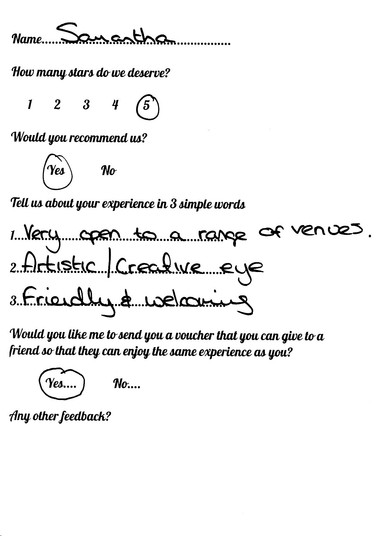 Name......Samantha.................
How many stars do we deserve?
1 2 3 4 5
Would you recommend us?
Yes No
Tell us about your experience in 3 simple words
1...Very open to a range of venues.
2...Artistic / Creative eye
3...Friendly & welcoming
Would you like me to send you a voucher that you can give to a
friend so that they can enjoy the same experience as you?
Yes.... No....
Any other feedback?